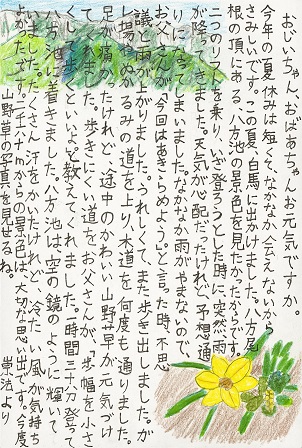 おじいちゃん、おばあちゃんお元気ですか。
今年の夏休みは短くて、なかなか会えないから
さみしいです。この夏、白馬に出かけました。八方尾
根の頂にある、八方池の景色を見たかったからです。
二つのリフトを乗り、いざ登ろうとした時に、突然雨
が降ってきました。天気が心配だったけれど、予想通
りになってしまいました。なかなか雨がやまないので、
お父さんが、「今回はあきらめよう。」と言った時、不思
議と雨が上がりました。うれしくて、また歩き出しました。が
け場やぬかるみの道を上り、木道を何度も通りました。
足が痛かったけれど、途中のかわいい山野草が元気づけ
てくれました。歩きにくい道をお父さんが、「歩幅を小さ
くして歩くといいよ。」と教えてくれました。一時間三十分登って
八方池に着きました。八方池は空の鏡のように輝いて
いました。たくさん汗をかいたけれど、冷たい風が気持ち
よかったです。二千六十mからの景色は、大切な思い出です。今度、
山野草の写真を見せるね。
崇法より